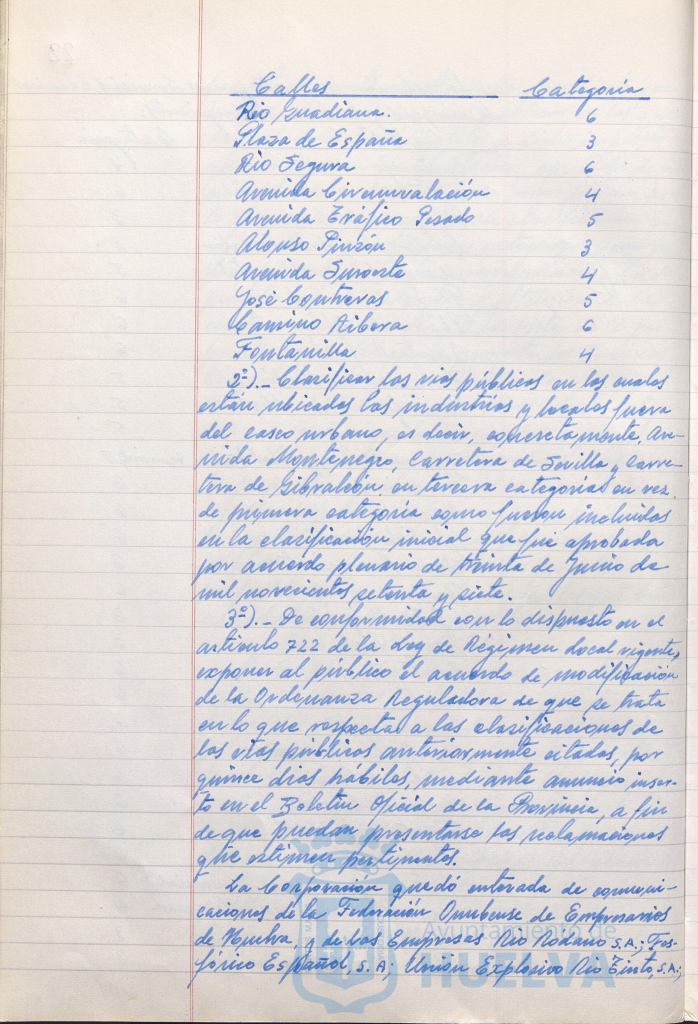 Calles Categoría
Rio Guadiana. 6
Plaza de España 3
Rio Segura 6
Avenida Circunvalación 4
Avenida Tráfico Pesado 5
Alonso Pinzón 3
Avenida Suroeste 4
José Contreras 5
Camino Ribera 6
Fontanilla 4
2º).- Clasificar las vias públicas en las cuales
están ubicadas las industrias y locales fuera
del casco urbano, es decir, concretamente, Ave-
nida Montenegro, Carretera de Sevilla y Carre-
tera de Gibraleón, en tercera categoría en vez
de primera categoría como fueron incluidas
en la clasificación inicial que fué aprobada
por acuerdo plenario de treinta de Junio de
mil novecientos setenta y siete.
3º).- De conformidad con lo dispuesto en el
artículo 722 de la Ley de Régimen Local vigente,
exponer al público el acuerdo de modificación
de la Ordenanza Reguladora de que se trata
en lo que respecta a las clasificaciones de
las vías públicas anteriormente citadas, por
quince días hábiles, mediante anuncio inser-
to en el Boletín Oficial de la Provincia, a fin
de que puedan presentarse las reclamaciones
que estimen pertinentes.
La Corporación quedó enterada de comuni-
caciones de la Federación Onubense de Empresarios
de Huelva, y de las Empresas Rio Rodano S.A.; Fos-
fórico Español, S.A; Unión Explosivo Rio Tinto, S.A.;
Ayuntamiento de
HUELVA